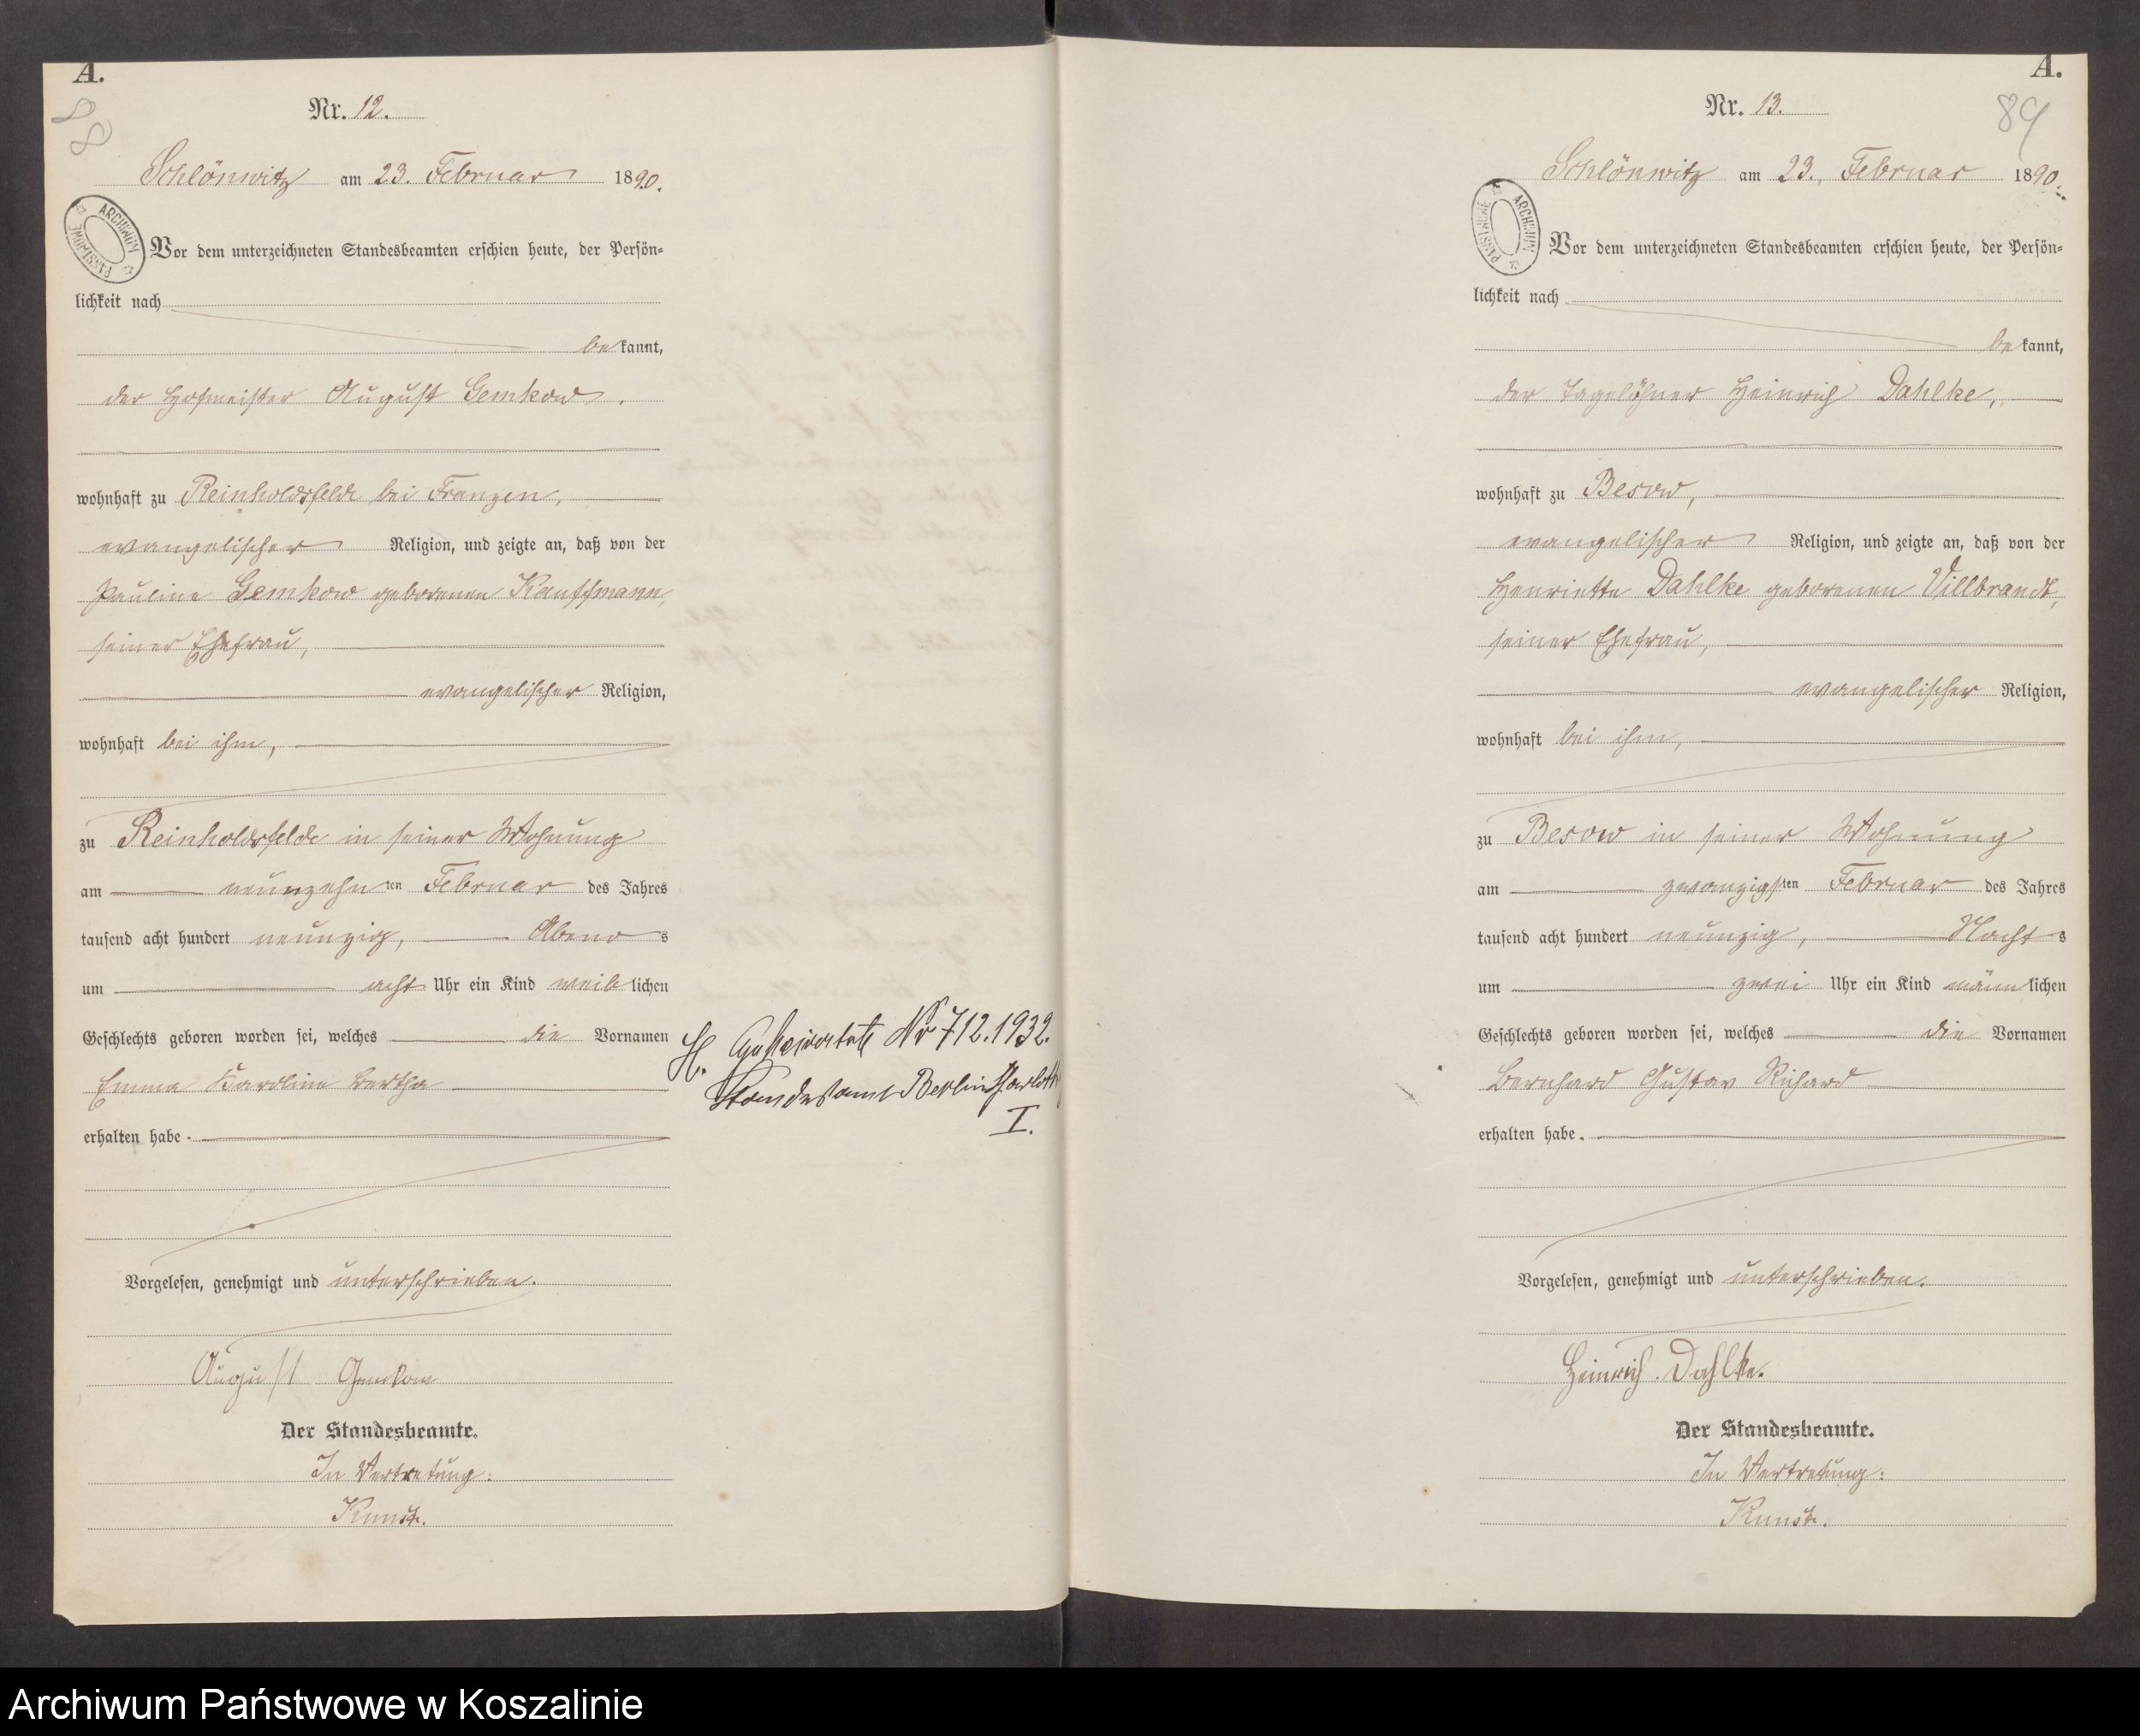 A.
88
Nr. 12.
Schlönwitz am 23. Februar 1890.
ARCHIWUM PAŃSTWOWE
Vor dem unterzeichneten Standesbeamten erschien heute, der Persön-
lichkeit nach
bekannt,
der Hofmeister August Gemkow,
wohnhaft zu Reinholdsfelde bei Franzen,
evangelischer Religion, und zeigte an, daß von der
Pauline Gemkow geborenen Kauffmann,
seiner Ehefrau,
evangelischer Religion,
wohnhaft bei ihm,
zu Reinholdsfelde in seiner Wohnung
am neunzehnten Februar des Jahres
tausend acht hundert neunzig, Abends
um acht Uhr ein Kind weiblichen
Geschlechts geboren worden sei, welches die Vornamen
Emma Karoline Bertha
erhalten habe.
Vorgelesen, genehmigt und unterschrieben.
August Gemkow
Der Standesbeamte.
In Vertretung:
H. Geheiratet Nr 712.1932.
Standesamt Berlin
I.
A.
89
Nr. 13.
Schlönwitz am 23. Februar 1890.
ARCHIWUM PAŃSTWOWE
Vor dem unterzeichneten Standesbeamten erschien heute, der Persön-
lichkeit nach
bekannt,
der Tagelöhner Heinrich Dahlke,
wohnhaft zu Besow,
evangelischer Religion, und zeigte an, daß von der
Henriette Dahlke geborenen Villbrandt,
seiner Ehefrau,
evangelischer Religion,
wohnhaft bei ihm,
zu Besow in seiner Wohnung
am zwanzigsten Februar des Jahres
tausend acht hundert neunzig, Nachts
um zwei Uhr ein Kind männlichen
Geschlechts geboren worden sei, welches die Vornamen
Bernhard Gustav Richard
erhalten habe.
Vorgelesen, genehmigt und unterschrieben.
Heinrich Dahlke.
Der Standesbeamte.
In Vertretung:
Archiwum Państwowe w Koszalinie